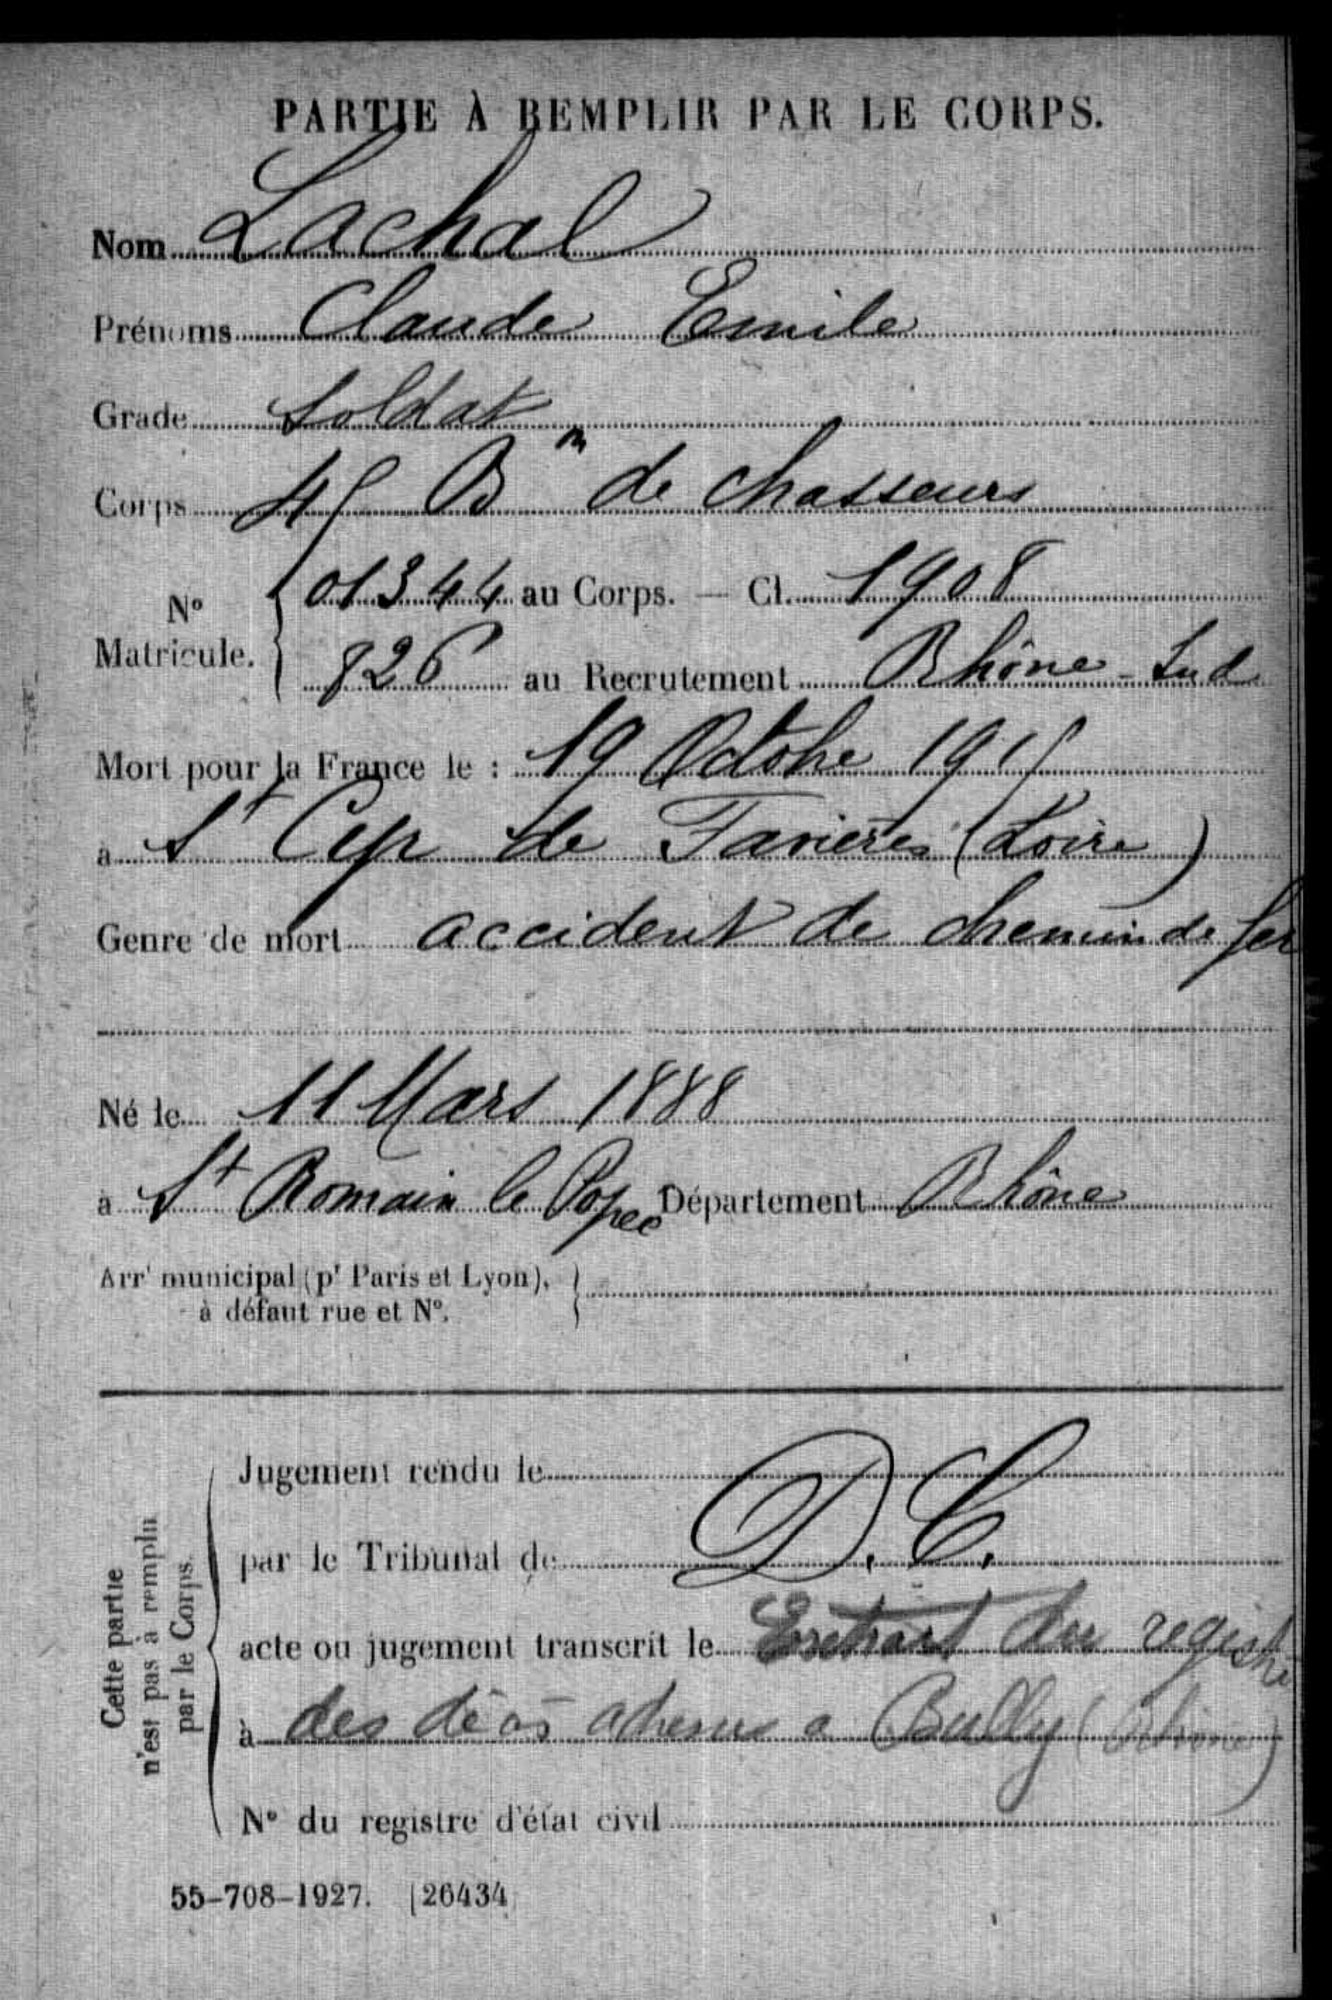 PARTIE À REMPLIR PAR LE CORPS.
Nom Lachal
Prénoms Claude Emile
Grade Soldat
Corps 45 Bn de chasseurs
N° Matricule. { 01344 au Corps. — Cl. 1908
826 au Recrutement Rhône-Sud
Mort pour la France le : 19 Octobre 1915
à St Cyr de Favières (Loire)
Genre de mort accident de chemin de fer
Né le 11 Mars 1888
à St Romain le Popee Département Rhône
Arrt municipal (pr Paris et Lyon), à défaut rue et N°. }
Cette partie n'est pas à remplir par le Corps.
Jugement rendu le D. C.
par le Tribunal de
acte ou jugement transcrit le Extrait du registre
à des décès adressé a Bully (Rhône)
N° du registre d'état civil
55-708-1927. [26434